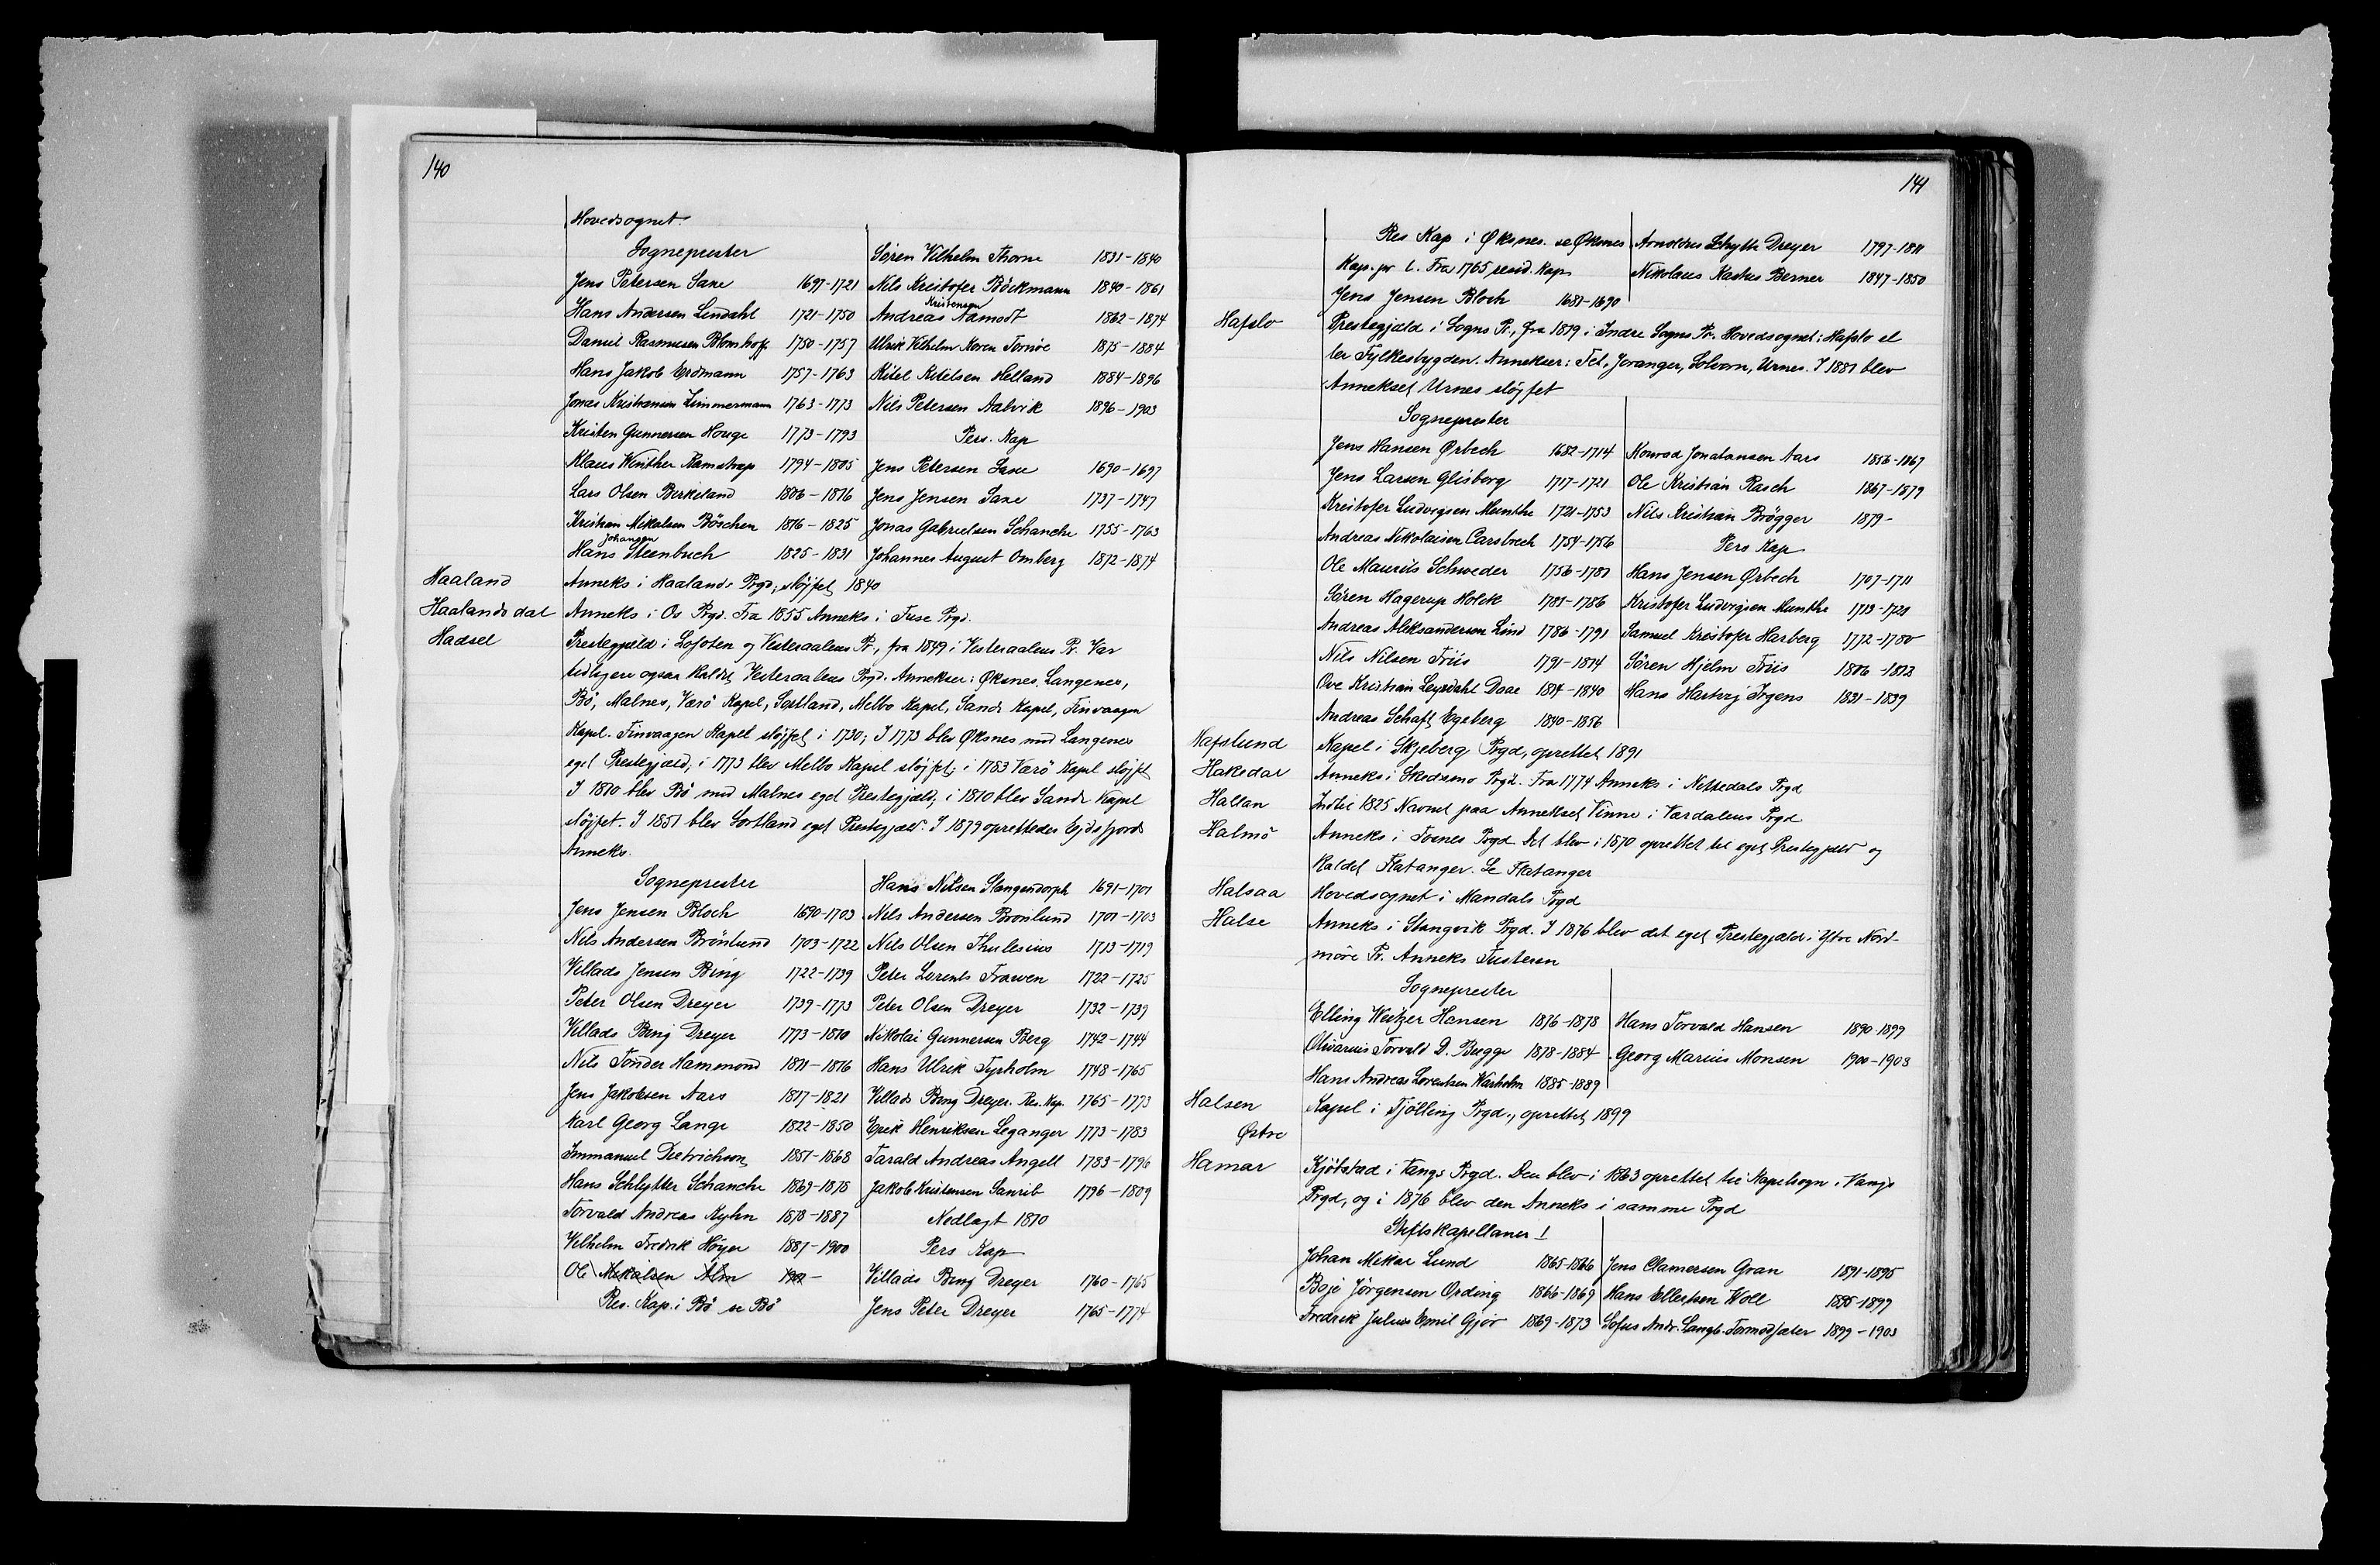 140
Hovedsognet.
Sogneprester
Jens Petersen Saxe 1697-1721
Hans Andersen Lindahl 1721-1750
Daniel Rasmussen Blomhoff 1750-1757
Hans Jakob Erdmann 1757-1763
Jonas Kristensen Zimmermann 1763-1773
Kristen Gunnersen Houge 1773-1793
Klaus Winther Kamstrup 1794-1805
Lars Olsen Birkeland 1806-1816
Kristian Mikalsen Böschen 1816-1825
Johansen
Hans Steenbuch 1825-1831
Sören Vilhelm Thorne 1831-1840
Nils Kristofer Böckmann 1840-1861
Kristensen
Andreas Aamodt 1862-1874
Ulrik Vilhelm Koren Tornöe 1875-1884
Kitel Kitelsen Helland 1884-1896
Nils Petersen Aalvik 1896-1903
Pers. Kap
Jens Petersen Saxe 1690-1697
Jens Jensen Saxe 1737-1747
Jonas Gabrielsen Schanche 1755-1763
Johannes August Omberg 1872-1874
Haaland Anneks i Haalands Prgd; slöjfet 1840
Haalandsdal Anneks i Os Prgd. Fra 1855 Anneks i Fuse Prgd.
Hadsel Prestegjæld i Lofoten og Vesteraalens Pr, fra 1849 i Vesteraalens Pr. Var
tidligere ogsaa kaldet Vesteraalens Prgd. Annekser: Øksnes, Langenes,
Bö, Malnes, Værö Kapel, Sortland, Melbo Kapel, Sands Kapel, Finvaagen
Kapel. Finvaagen Kapel slöjfet i 1730; I 1773 blev Øksnes med Langenes
eget Prestegjæld; i 1773 blev Melbo Kapel slöjfet; i 1783 Værö Kapel slöjfet
I 1810 blev Bö med Malnes eget Prestegjæld; i 1810 blev Sands Kapel
slöjfet. I 1851 blev Sortland eget Prestegjæld. I 1879 oprettedes Ejdsfjord
Anneks.
Sogneprester
Jens Jensen Bloch 1690-1703
Nils Andersen Brönlund 1703-1722
Villads Jensen Bing 1722-1739
Peter Olsen Dreyer 1739-1773
Villads Bing Dreyer 1773-1810
Nils Tönder Hammond 1811-1816
Jens Jakobsen Aars 1817-1821
Karl Georg Lange 1822-1850
Immanuel Dietrichson 1851-1868
Hans Schlytter Schanche 1869-1878
Torvald Andreas Kyhn 1878-1887
Vilhelm Fredrik Höyer 1887-1900
Ole Mikalsen Alm 1901-
Res. Kap. i Bö se Bö
Hans Nilsen Stangendorph 1691-1701
Nils Andersen Brönlund 1701-1703
Nils Olsen Thulesius 1713-1719
Peter Lorents Frawen 1722-1725
Peter Olsen Dreyer 1732-1739
Nikolai Gunnersen Berg 1742-1744
Hans Ulrik Tyrholm 1748-1765
Villads Bing Dreyer. Res. Kap. 1765-1773
Erik Henriksen Leganger 1773-1783
Tarald Andreas Angell 1783-1796
Jakob Kristensen Sanrib 1796-1809
Nedlagt 1810
Pers Kap
Villads Bing Dreyer 1760-1765
Jens Peter Dreyer 1765-1774
141
Res Kap i Øksnes. se Øksnes
Kap. pr l. Fra 1765 resid. Kap
Jens Jensen Bloch 1681-1690
Arnoldus Schytte Dreyer 1797-1811
Nikolaus Kastus Berner 1847-1850
Hafslo Prestegjæld i Sogns Pr, fra 1819 i Indre Sogns Pr. Hovedsognet: Hafslo el
ler Fylkesbygden. Annekser: Fet, Joranger, Solvorn, Urnes. I 1881 blev
Annekset Urnes slöjfet
Sogneprester
Jens Hansen Ørbech 1682-1714
Jens Larsen Glisberg 1717-1721
Kristofer Ludvigsen Munthe 1721-1753
Andreas Nikolaisen Carsbrech 1754-1756
Ole Maurits Schweder 1756-1781
Sören Hagerup Holck 1781-1786
Andreas Aleksandersen Lind 1786-1791
Nils Nilsen Friis 1791-1814
Ove Kristian Leyrdahl Daae 1814-1840
Andreas Schaft Egeberg 1840-1856
Konrad Jonatansen Aars 1856-1867
Ole Kristian Rasch 1867-1879
Nils Kristian Brögger 1879-
Pers Kap
Hans Jensen Ørbech 1707-1711
Kristofer Ludvigsen Munthe 1713-1721
Samuel Kristofer Harberg 1772-1780
Sören Hjelm Friis 1806-1813
Hans Hartvig Irgens 1831-1839
Hafslund Kapel i Skjeberg Prgd, oprettet 1891
Hakedal Anneks i Skedsmo Prgd. Fra 1774 Anneks i Nittedals Prgd
Hallan Indtil 1825 Navnet paa Annekset Vinne i Værdalens Prgd
Halmö Anneks i Fosnes Prgd. Det blev i 1870 oprettet til eget Prestegjæld og
kaldet Flatanger. Se Flatanger
Halsaa Hovedsognet i Mandals Prgd
Halse Anneks i Stangvik Prgd. I 1876 blev det eget Prestegjæld i Ytre Nord-
möre Pr. Anneks Tusteren
Sogneprester
Elling Weitzer Hansen 1876-1878
Olivarius Torvald D. Bugge 1878-1884
Hans Andreas Lorentsen Warholm 1885-1889
Hans Torvald Hansen 1890-1899
Georg Marius Monsen 1900-1903
Halsen Kapel i Tjölling Prgd., oprettet 1899
Östre
Hamar Kjöbstad i Vangs Prgd. Den blev i 1863 oprettet til Kapelsogn i Vangs
Prgd, og i 1876 blev den Anneks i samme Prgd
Stiftskapellaner I
Johan Mikal Lund 1865-1866
Boje Jörgensen Opding 1866-1869
Fredrik Julius Emil Gjör 1869-1873
Jens Clamersen Gran 1891-1895
Hans Ellertsen Woll 1895-1899
Sofus Andr. Langb. Tormodsæter 1899-1903